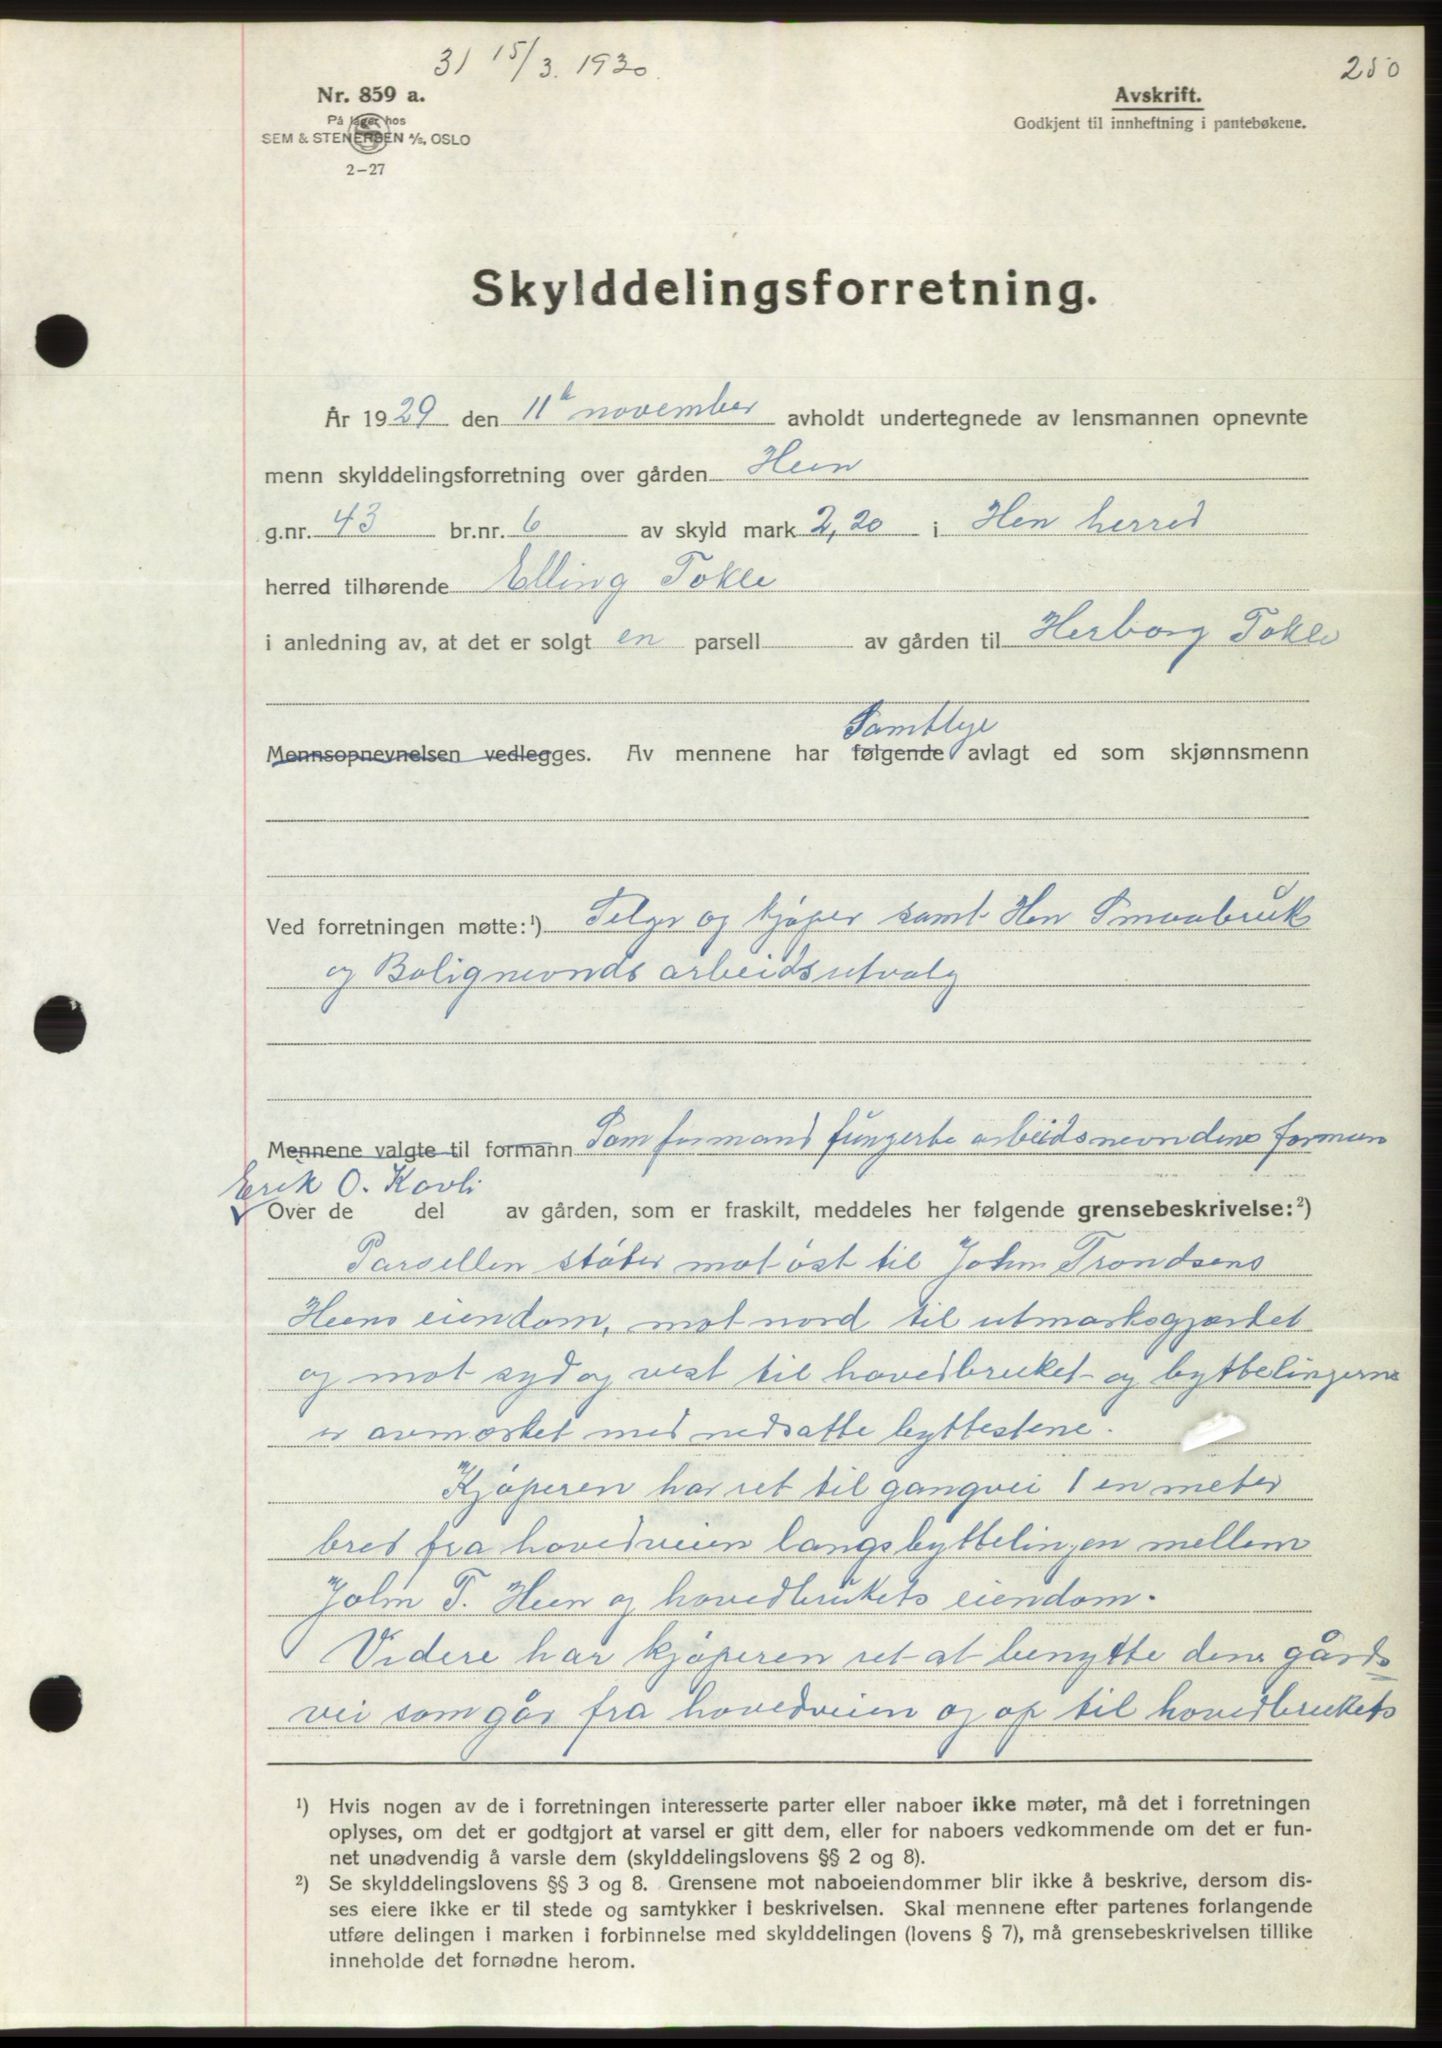 3) 15/3. 1930
250
Nr. 859 a.
På lager hos
SEM & STENERSEN A/S, OSLO
2-27
Avskrift.
Godkjent til innheftning i pantebøkene.
Skylddelingsforretning.
År 1929 den 11te november avholdt undertegnede av lensmannen opnevnte
menn skylddelingsforretning over gården Heen
g.nr. 43 br.nr. 6 av skyld mark 2,20 i Hen herred
herred tilhørende Elling Tokle
i anledning av, at det er solgt en parsell av gården til Herborg Tokle
Samtlige
Mennsopnevnelsen vedlegges. Av mennene har følgende avlagt ed som skjønnsmenn
Ved forretningen møtte:¹) Selger og kjøper samt Hen Smaabruk
og Bolignevnds arbeidsutvalg
Mennene valgte til formann Som formand fungerte arbeidsnevndens forman
Erik O. Kavli
Over de del av gården, som er fraskilt, meddeles her følgende grensebeskrivelse:²)
Parsellen støter mot øst til John Trondsens
Heens eiendom, mot nord til utmarksgjærdet
og mot syd og vest til hovedbruket og byttelingerne
er avmerket med nedsatte byttestene.
Kjøperen har ret til gangvei 1 en meter
bred fra hovedveien langs byttelinjen mellem
John T. Heen og hovedbrukets eiendom.
Videre har kjøperen ret at benytte den gårds
vei som går fra hovedveien og op til hovedbrukets
¹) Hvis nogen av de i forretningen interesserte parter eller naboer ikke møter, må det i forretningen
oplyses, om det er godtgjort at varsel er gitt dem, eller for naboers vedkommende om det er fun-
net unødvendig å varsle dem (skylddelingslovens §§ 2 og 8).
²) Se skylddelingslovens §§ 3 og 8. Grensene mot naboeiendommer blir ikke å beskrive, dersom dis-
ses eiere ikke er til stede og samtykker i beskrivelsen. Skal mennene efter partenes forlangende
utføre delingen i marken i forbinnelse med skylddelingen (lovens § 7), må grensebeskrivelsen tillike
inneholde det fornødne herom.